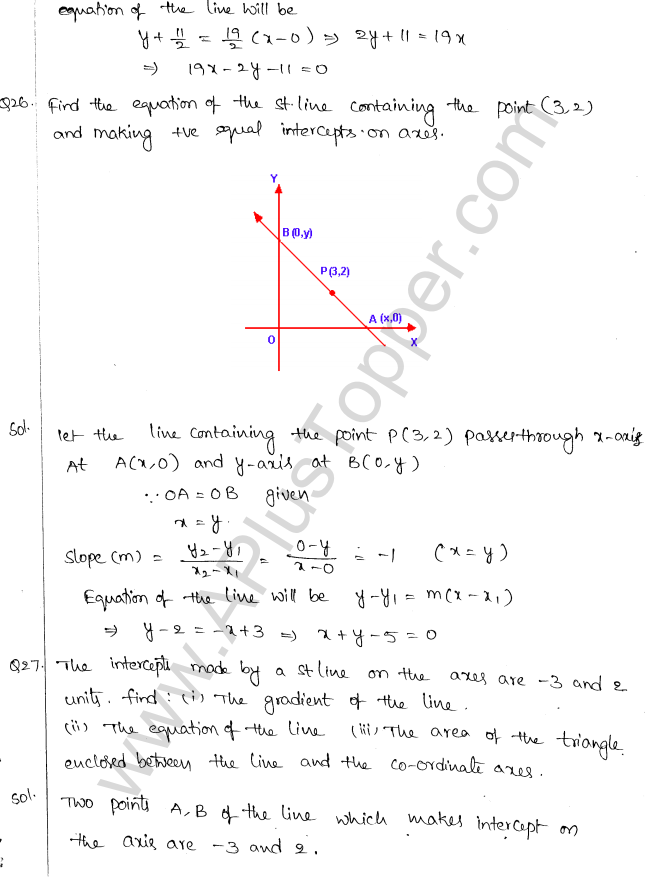 equation of the line will be
y + 11/2 = 19/2 (x-0) ⇒ 2y + 11 = 19x
⇒ 19x - 2y - 11 = 0
Q26. Find the equation of the st. line containing the point (3, 2)
and making +ve equal intercepts on axes.
Y
B (0,y)
P(3,2)
A (x,0)
O
X
Sol. let the line containing the point P(3, 2) passes through x-axis
At A(x, 0) and y-axis at B(0, y)
∵ OA = OB given
x = y.
Slope (m) = y₂-y₁/x₂-x₁ = 0-y/x-0 = -1 (x = y)
Equation of the line will be y-y₁ = m(x-x₁)
⇒ y-2 = -x+3 ⇒ x+y-5 = 0
Q27. The intercepts made by a st line on the axes are -3 and 2
units. find : (i) The gradient of the line.
(ii) The equation of the line (iii) The area of the triangle
enclosed between the line and the co-ordinate axes.
Sol. Two points A, B of the line which makes intercept on
the axis are -3 and 2.
www.APlusTopper.com